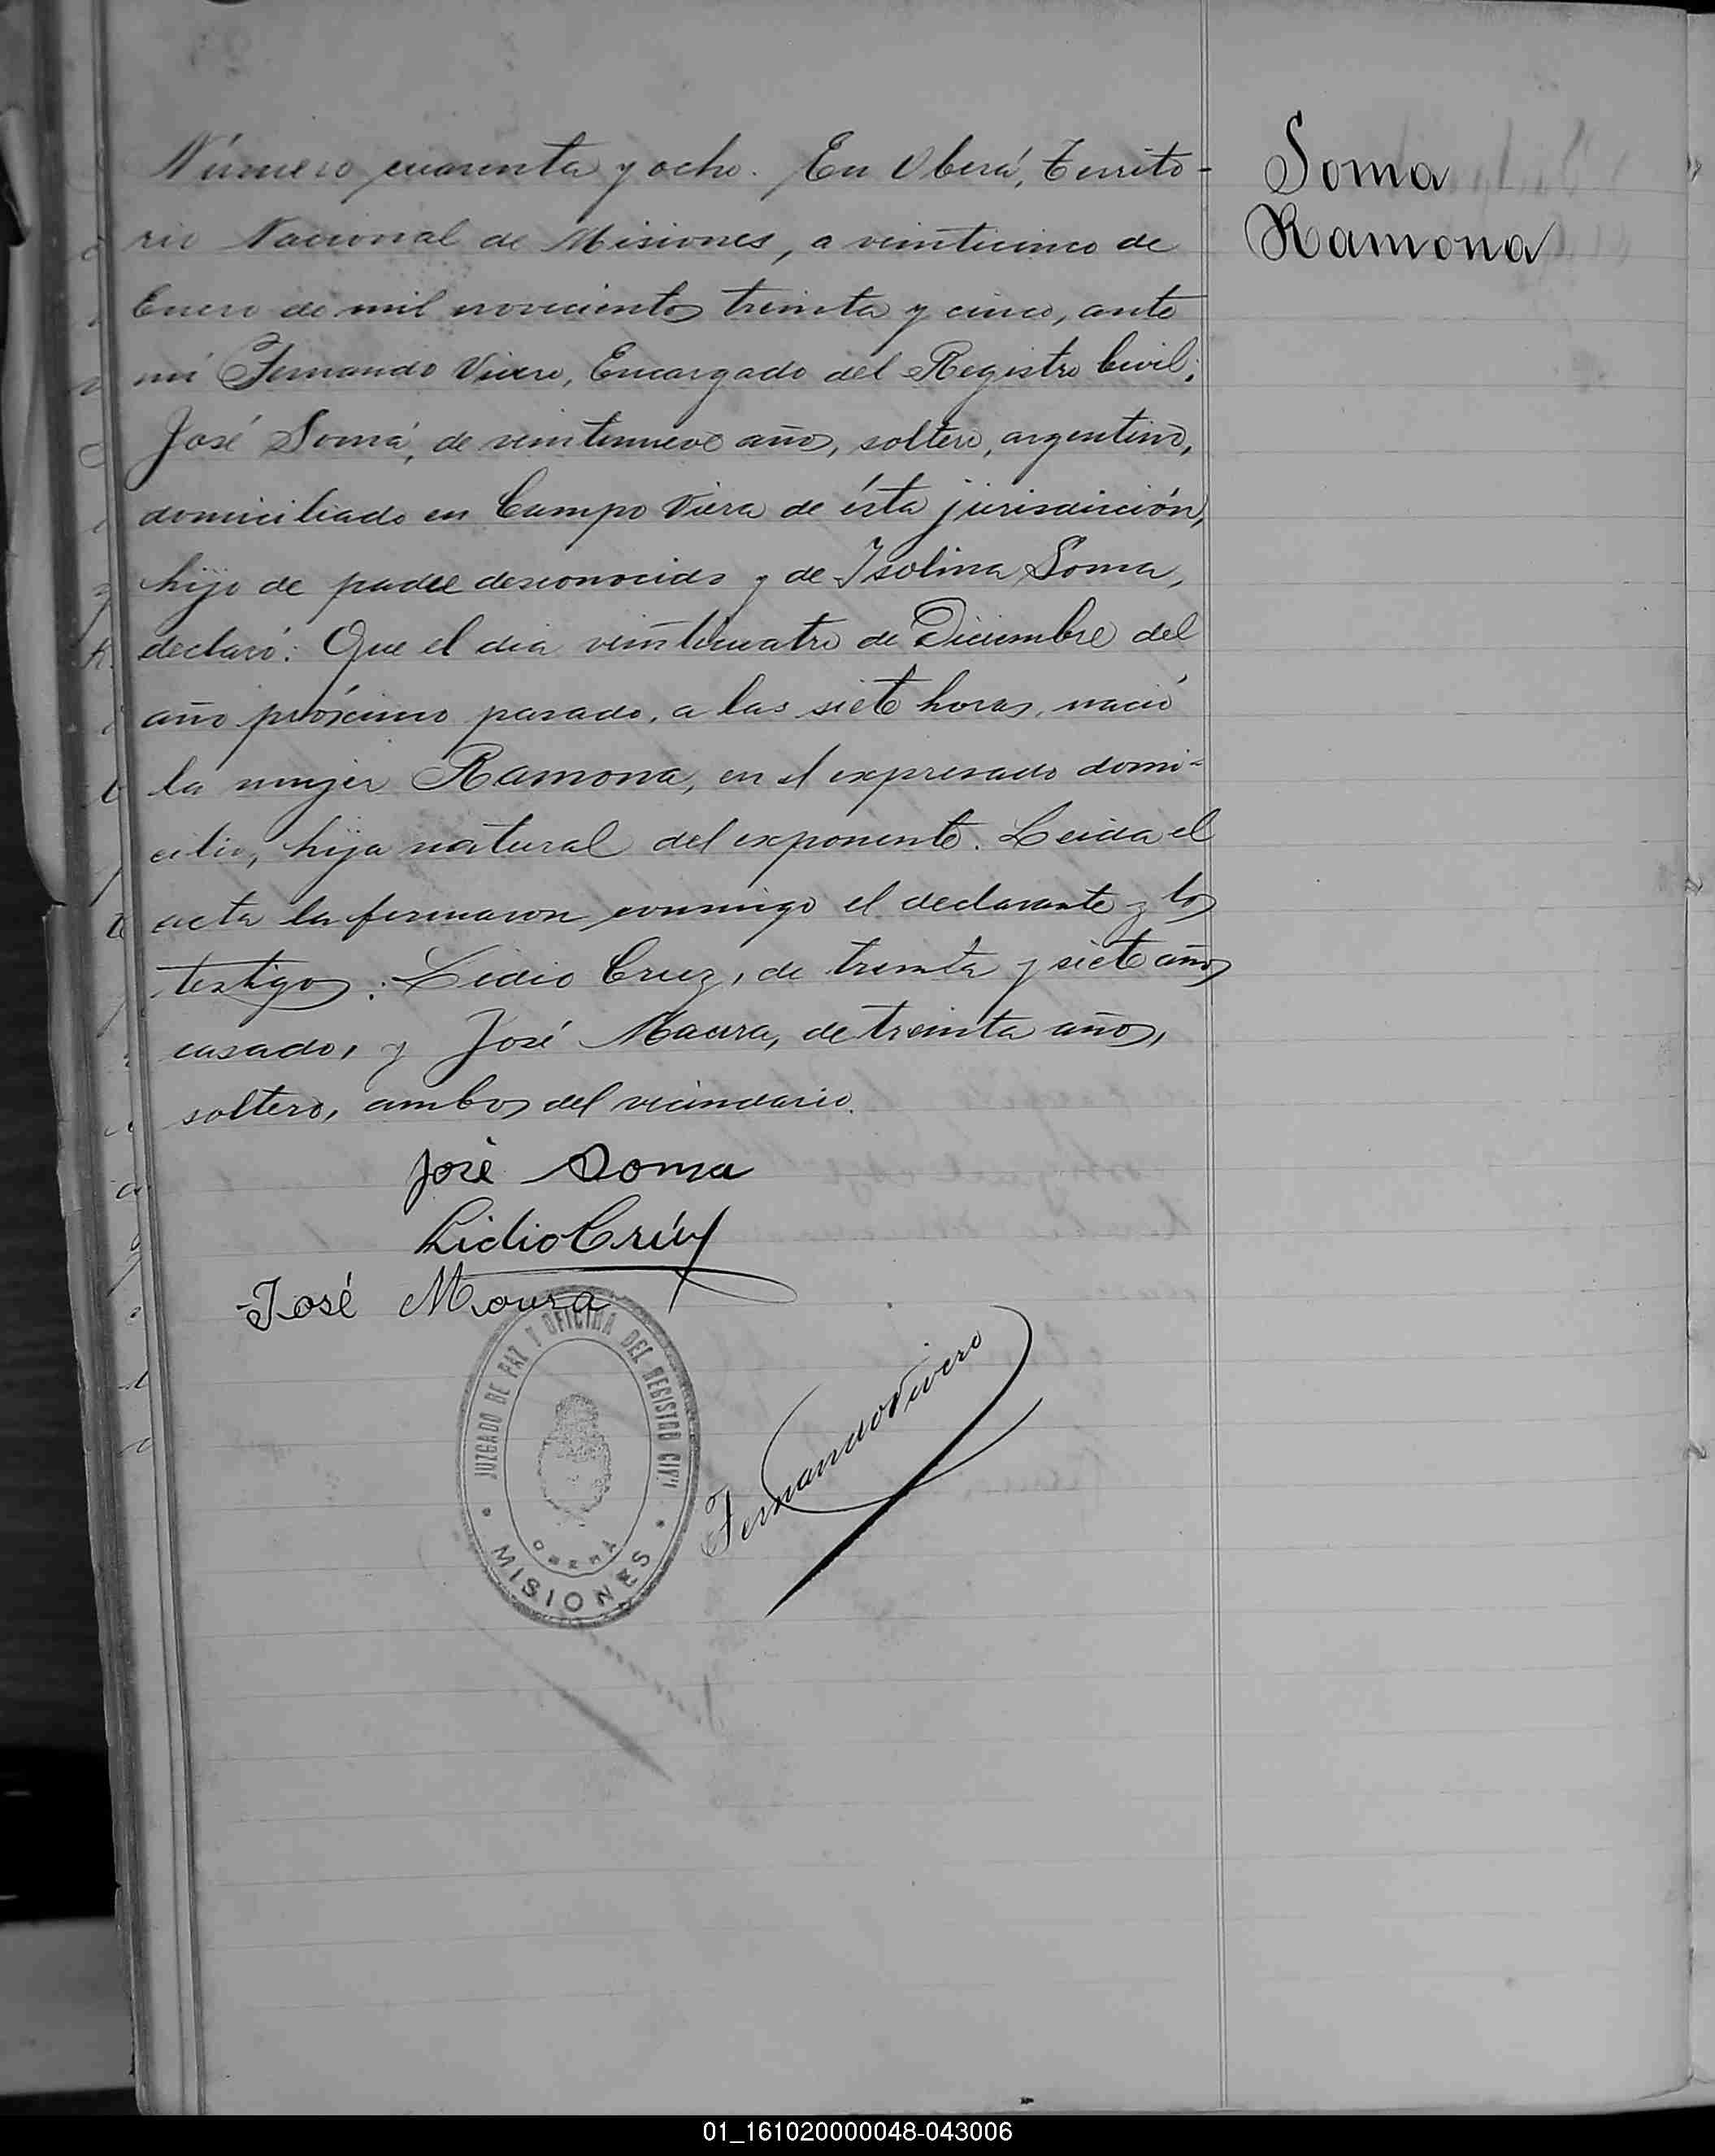 Número cuarenta y ocho. En Oberá, Territo-
rio Nacional de Misiones, a veinticinco de
Enero de mil novecientos treinta y cinco, ante
mí Fernando Vivero, Encargado del Registro Civil;
José Somá, de veintinueve años, soltero, argentino,
domiciliado en Campo Viera de ésta jurisdicción,
hijo de padre desconocido y de Isolina Soma,
declaró: Que el día veinticuatro de Diciembre del
año próximo pasado, a las siete horas, nació
la mujer Ramona, en el expresado domi-
cilio, hija natural del exponente. Leida el
acta la firmaron conmigo el declarante y los
testigos: Lidio Cruz, de treinta y siete años
casado, y José Maura, de treinta años,
soltero, ambos del vecindario.
José Soma
Lidio Crúz
José Moura
Fernando Vivero
JUZGADO DE PAZ Y OFICINA DEL REGISTRO CIVIL
OBERÁ
MISIONES
Soma
Ramona
01_161020000048-043006